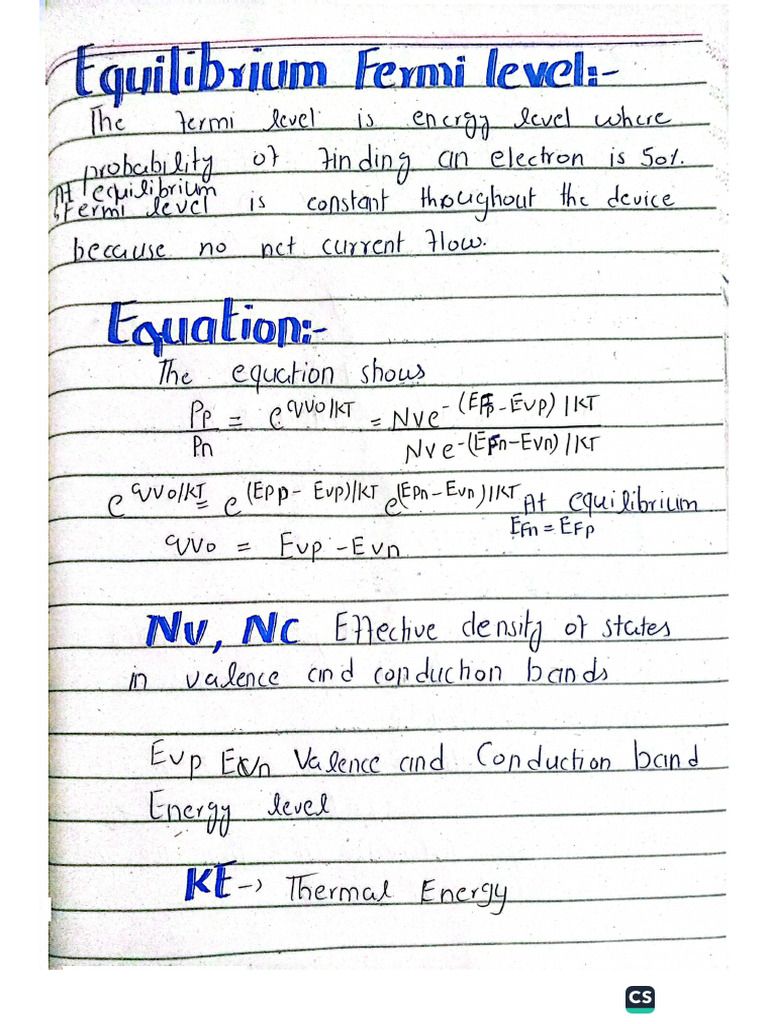 Equilibrium Fermi level:-
The fermi level is energy level where
probability of finding an electron is 50%.
At equilibrium
fermi level is constant throughout the device
because no net current flow.
Equation:-
The equation shows
Pp/Pn = e^qVo/KT = Nve^-(EFp-Evp)/KT / Nve^-(EFn-Evn)/KT
e^qVo/KT = e^(EFp-Evp)/KT e^(EFn-Evn)/KT At equilibrium
EFn = EFp
qVo = Evp - Evn
Nv, Nc Effective density of states
in valence and conduction bands
Evp Evn Valence and Conduction band
Energy level
KE → Thermal Energy
CS